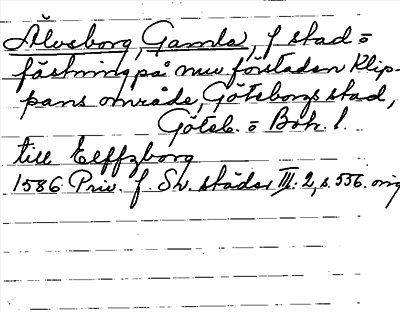 Älvsborg, Gamla, f stad =
fästning på nuv. förstaden Klip-
pans område, Göteborgs stad,
Göteb. = Boh. l.
till Elffzborg
1586 Priv. f. Sv. städer III: 2, s. 556. orig